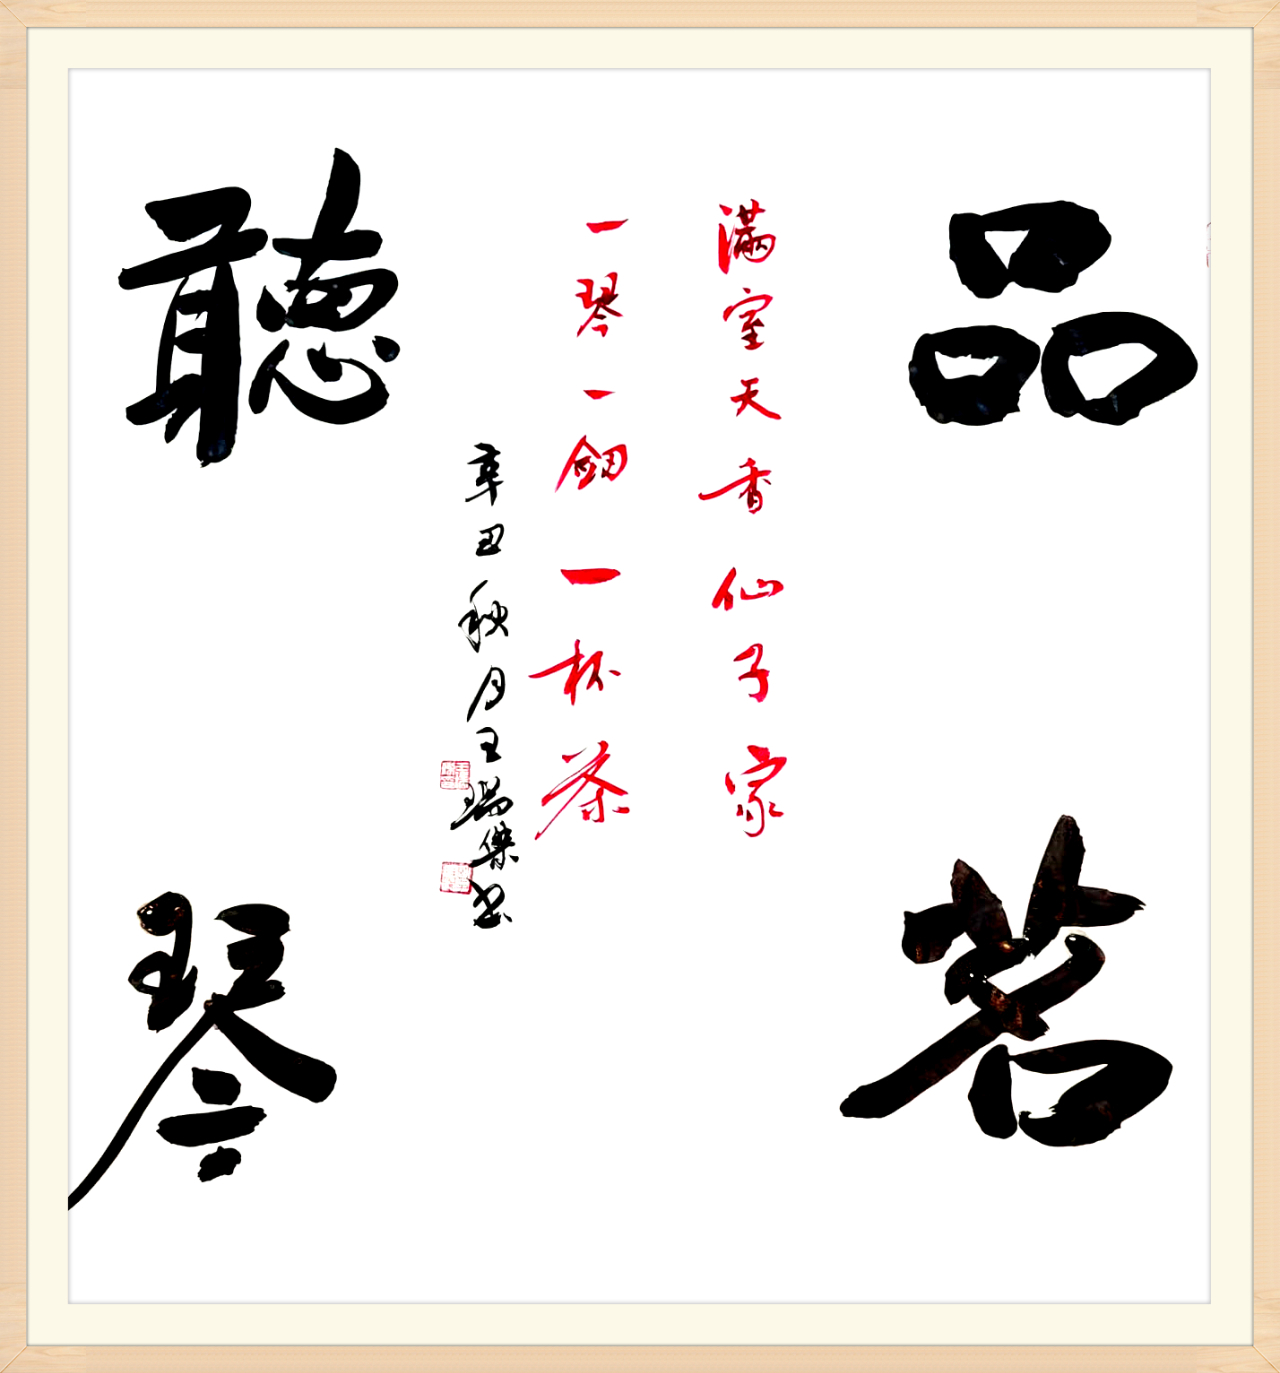 品茗
滿室天香仙子家
一琴一劒一杯茶
聽琴
辛丑秋月王瑞傑书